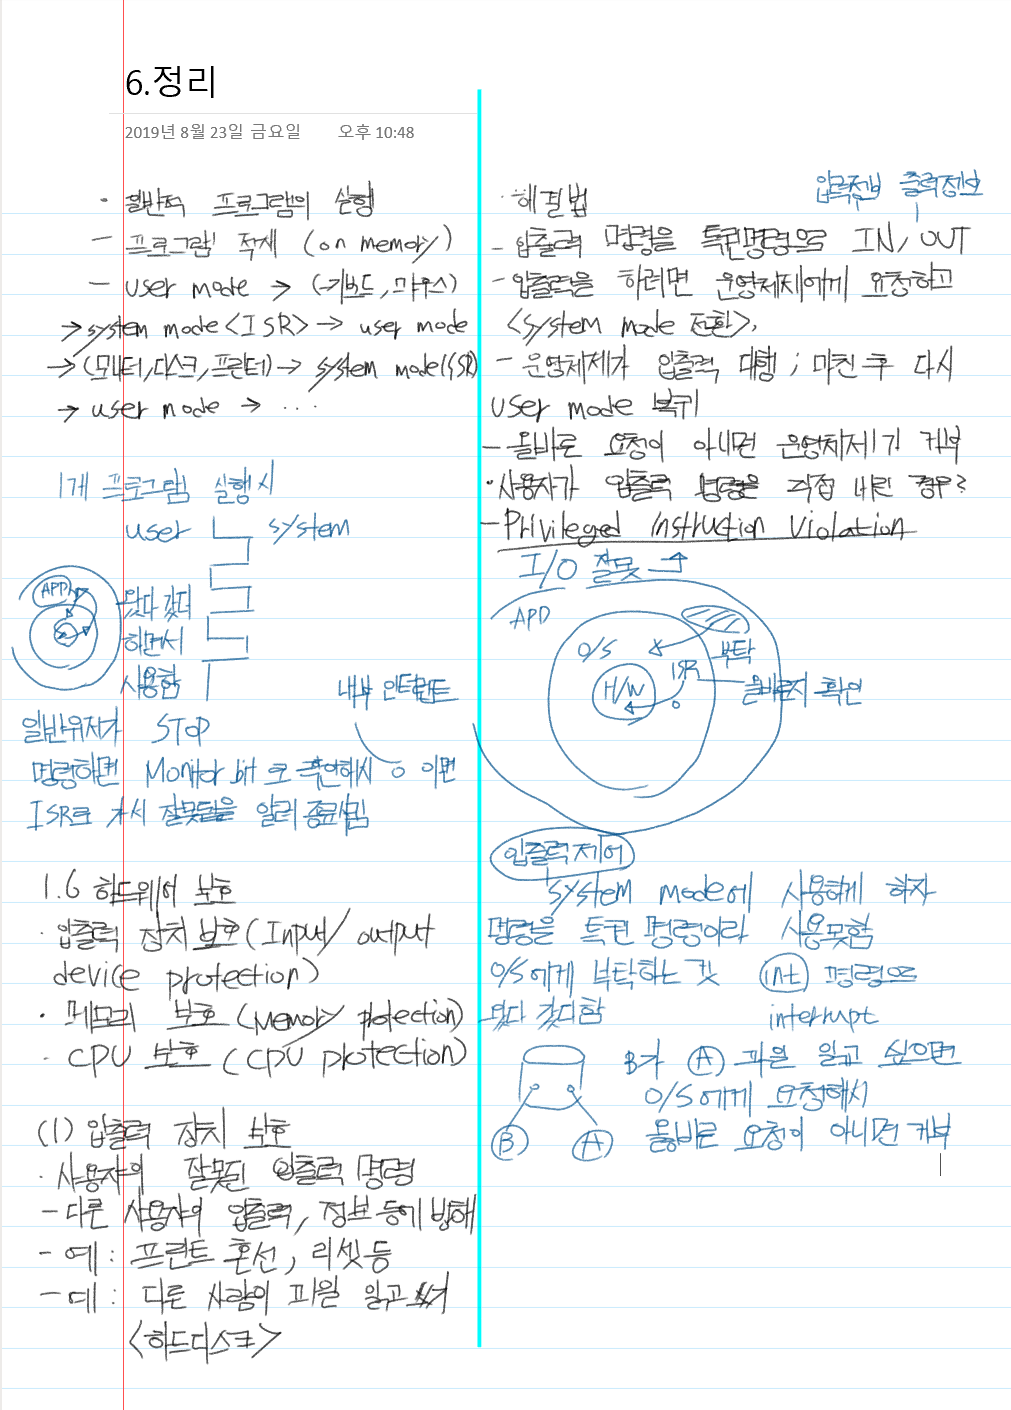 6.정리
2019년 8월 23일 금요일 오후 10:48
· 일반적 프로그램의 실행
- 프로그램 적재 (on memory)
- user mode → (키보드, 마우스)
→ system mode <ISR> → user mode
→ (모니터, 디스크, 프린터) → system mode(ISR)
→ user mode → ...
1개 프로그램 실행시
user system
APP
왔다 갔다
하면서
사용함
내부 인터럽트
일반유저가 STOP
명령하면 Monitor bit로 확인해서 0 이면
ISR로 가서 잘못됨을 알려 종료시킴
1.6 하드웨어 보호
· 입출력 장치 보호 (Input/output
device protection)
· 메모리 보호 (Memory protection)
· CPU 보호 (CPU protection)
(1) 입출력 장치 보호
· 사용자의 잘못된 입출력 명령
- 다른 사용자의 입출력, 정보 등에 방해
- 예: 프린트 혼선, 리셋 등
- 예: 다른 사람의 파일 읽고 쓰기
<하드디스크>
· 해결법
입력정보 출력정보
- 입출력 명령을 특권명령으로 IN, OUT
- 입출력을 하려면 운영체제에게 요청하고
<System mode 전환>,
- 운영체제가 입출력 대행; 마친 후 다시
User mode 복귀
- 올바로 요청이 아니면 운영체제가 거부
· 사용자가 입출력 명령을 직접 내린 경우?
- Privileged Instruction Violation
I/O 잘못
APP
O/S
H/W
ISR
부탁
올바른지 확인
입출력 제어
System mode에 사용하게 하자
명령을 특권 명령이라 사용못함
O/S에게 부탁하는 것 int 명령으로
왔다 갔다함 interrupt
B가 A 파일 읽고 싶으면
O/S에게 요청해서
B A 올바로 요청이 아니면 거부